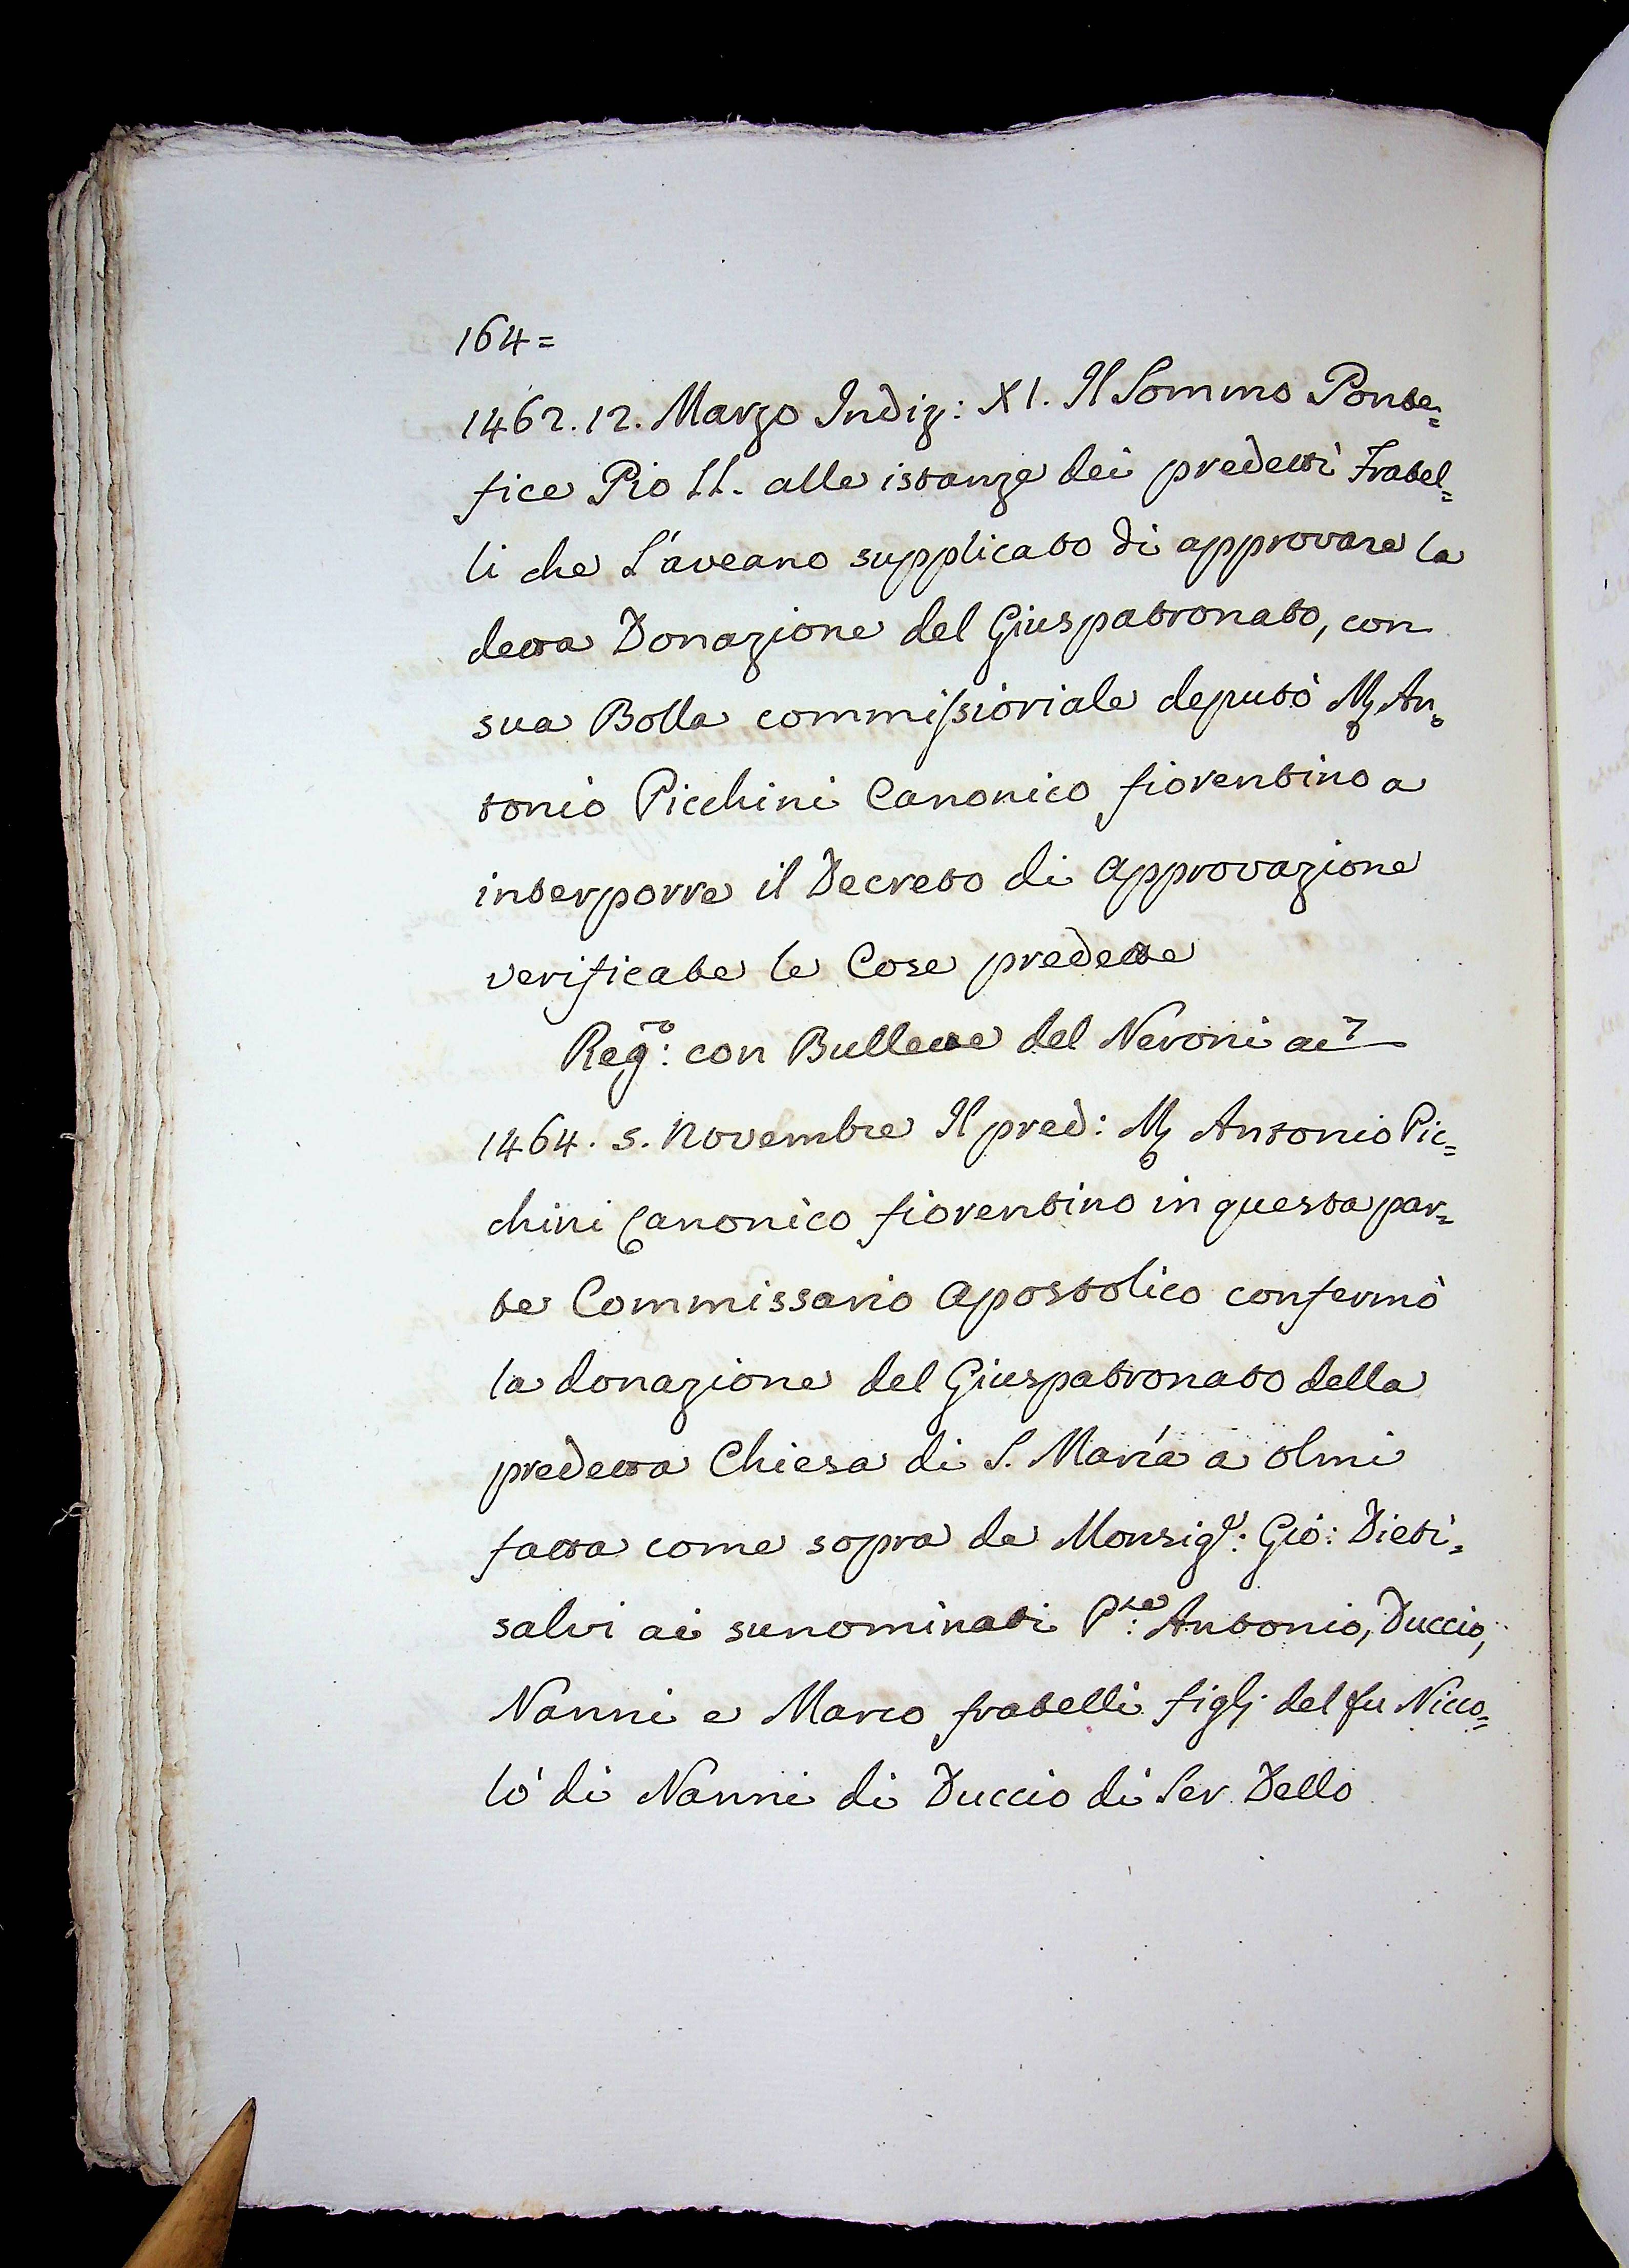 164=
1462. 12. Marzo Indiz: XI. Il Sommo Ponte=
fice Pio II. alle istanze dei predetti Fratel=
li che L'aveano supplicato di approvare la
detta Donazione del Giuspatronato, con
sua Bolla commissioriale deputò Mẓ An=
tonio Picchini Canonico fiorentino a
interporre il Decreto di Approvazione
verificate le Cose predette
Reg:ᵒ con Bullette del Neroni ai
1464. 5. Novembre Il pred: Mẓ Antonio Pic=
chini Canonico fiorentino in questa par=
te Commissario Apostolico confermò
la donazione del Giuspatronato della
predetta Chiesa di S. Maria a olmi
fatta come sopra da Monsigʳ: Gio: Dieti=
salvi ai sunominati Pᵗᵉ: Antonio, Duccio,
Nanni e Marco fratelli figlj del fu Nicco=
lò di Nanni di Duccio di Ser Dello